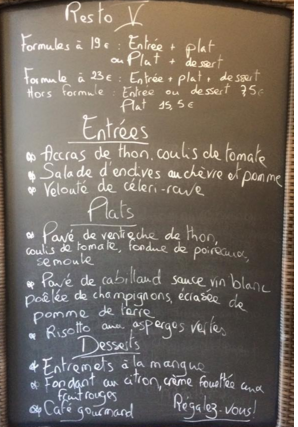 Resto V
Formules à 19€ : Entrée + plat
ou Plat + dessert
Formule à 23€ : Entrée + plat + dessert
Hors formule : Entrée ou dessert 7,5€
Plat 15,5€
Entrées
Accras de thon, coulis de tomate
Salade d'endives au chèvre et pomme
Velouté de céleri-rave
Plats
Pavé de ventrèche de thon,
coulis de tomate, fondue de poireaux,
semoule
Pavé de cabillaud sauce vin blanc
poêlée de champignons, écrasée de
pomme de terre
Risotto aux asperges vertes
Desserts
Entremets à la mangue
Fondant au citron, crème fouettée aux
fruits rouges
Café gourmand Régalez-vous!